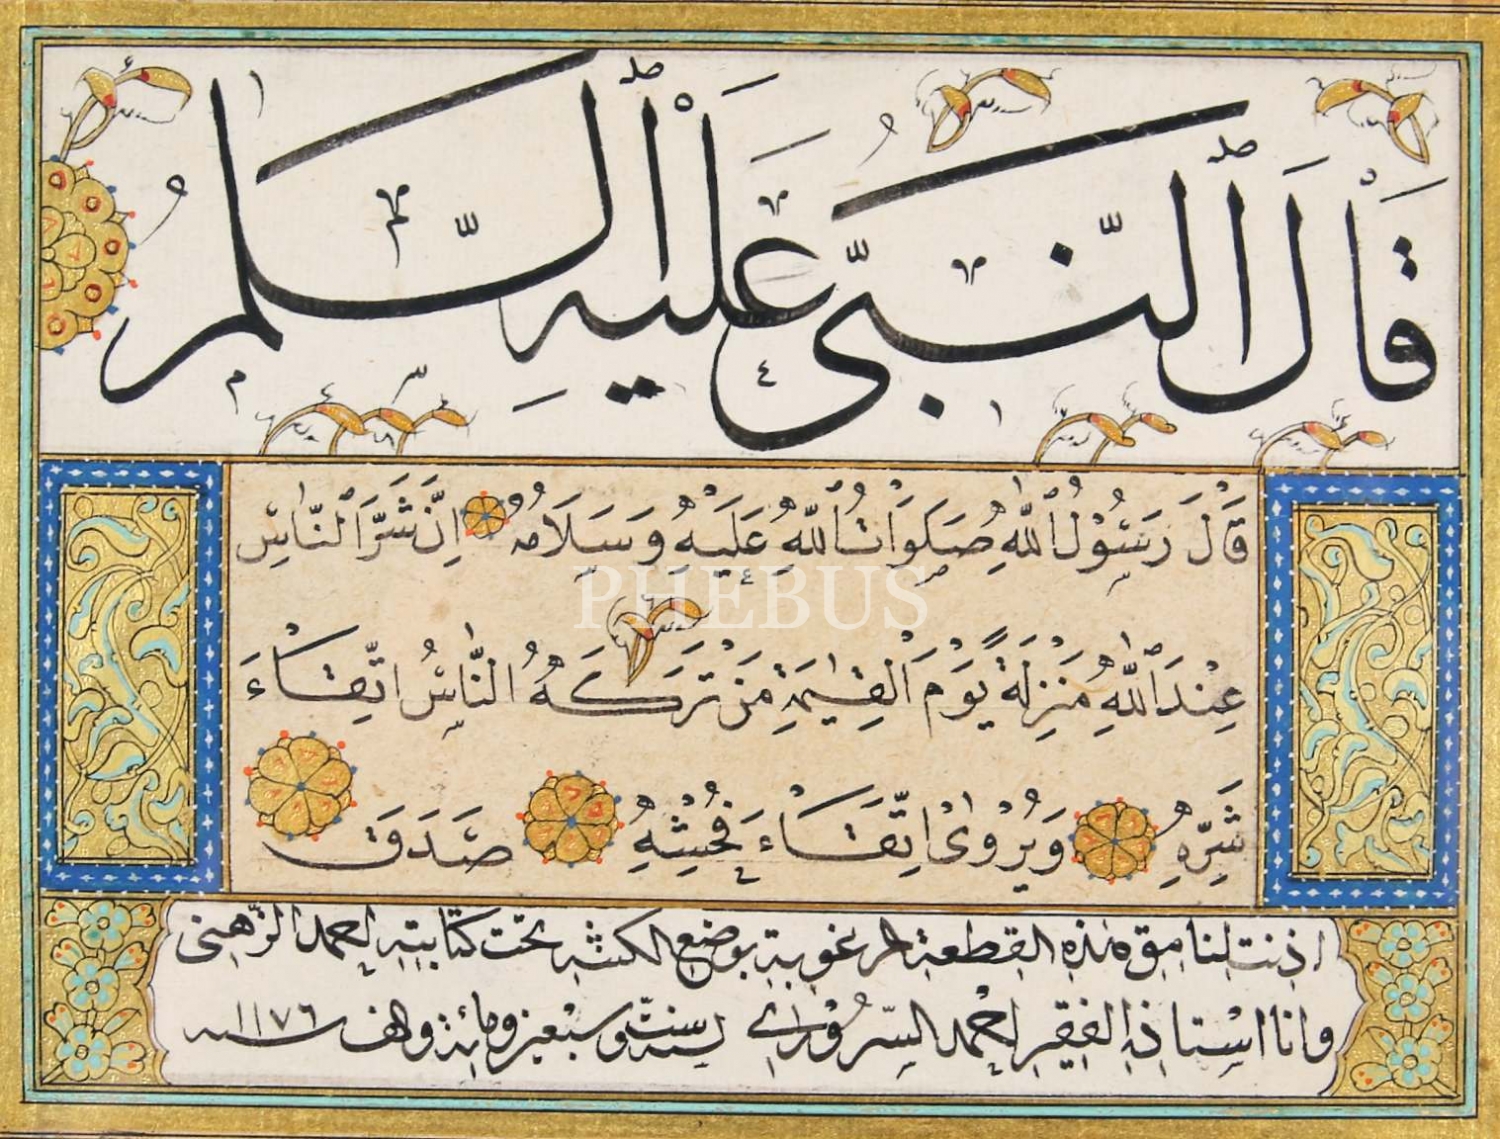 قَالَ النَّبِيُّ عَلَيْهِ السَّلٰمُ
قَالَ رَسُوْلُ اللّٰهِ صَلَوَاتُ اللّٰهِ عَلَيْهِ وَسَلَامُهُ اِنَّ شَرَّ النَّاسِ
PHEBUS
عِنْدَ اللّٰهِ مَنْزِلَةً يَوْمَ الْقِيٰمَةِ مَنْ تَرَكَهُ النَّاسُ اتِّقَاءَ
شَرِّهِ وَيُرْوٰى اتِّقَاءَ فُحْشِهِ صَدَقَ
اذنت لنامق هذه القطعة المرغوبة بوضع الكتبه تحت كتابته احمد الزهنى
وانا استاذه الفقير احمد السرورى لسنة ست وسبعين ومائة والف سنه ١١٧٦